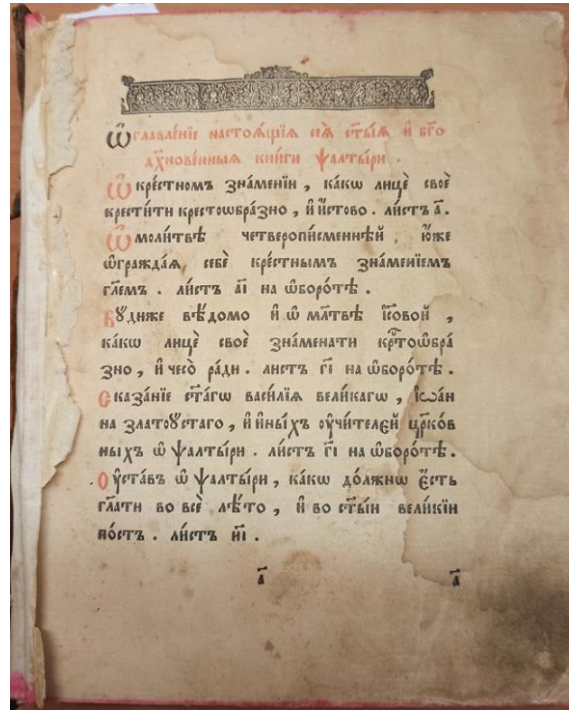 Ѡ҆главле́нїе настоѧ́щїѧ сеѧ̀ ст҃ы́ѧ и҆ бг҃о
дх҃нове́нныѧ кни́ги ѱалты́ри .
Ѡ҆ кре́стномъ зна́менїи , ка́кѡ лицѐ своѐ
крести́ти крестоѡбра́зно , и҆ и҆́стово . ли́стъ а҃ .
Ѡ҆ моли́твѣ четверопи́сменнѣй . ю҆́же
ѡ҆гражда́ѧ себѐ кре́стнымъ зна́менїемъ
гл҃емъ . ли́стъ а҃і на ѡ҆боро́тѣ .
Бꙋ́диже вѣ́домо и҆ ѡ҆ мл҃твѣ і҆с҃овой ,
ка́кѡ лицѐ своѐ зна́менати кр҃тоѡ҆бра́
зно , и҆ чесо̀ ра́ди . листъ г҃і на ѡ҆боро́тѣ .
Сказа́нїе ст҃а́гѡ васи́лїѧ вели́кагѡ , і҆ѡа́н
на златоꙋ́стаго , и҆ и҆ны́хъ ᲂу҆чи́телей цр҃ко́в
ныхъ ѡ҆ ѱалты́ри . ли́стъ г҃і на ѡ҆боро́тѣ .
Оу҆ста́въ ѡ҆ ѱалты́ри , ка́кѡ до́лжнѡ є҆́сть
гл҃ати во всѐ лѣ́то , и҆ во ст҃ы́и вели́кїи
по́стъ . ли́стъ и҃і .
а҃ а҃